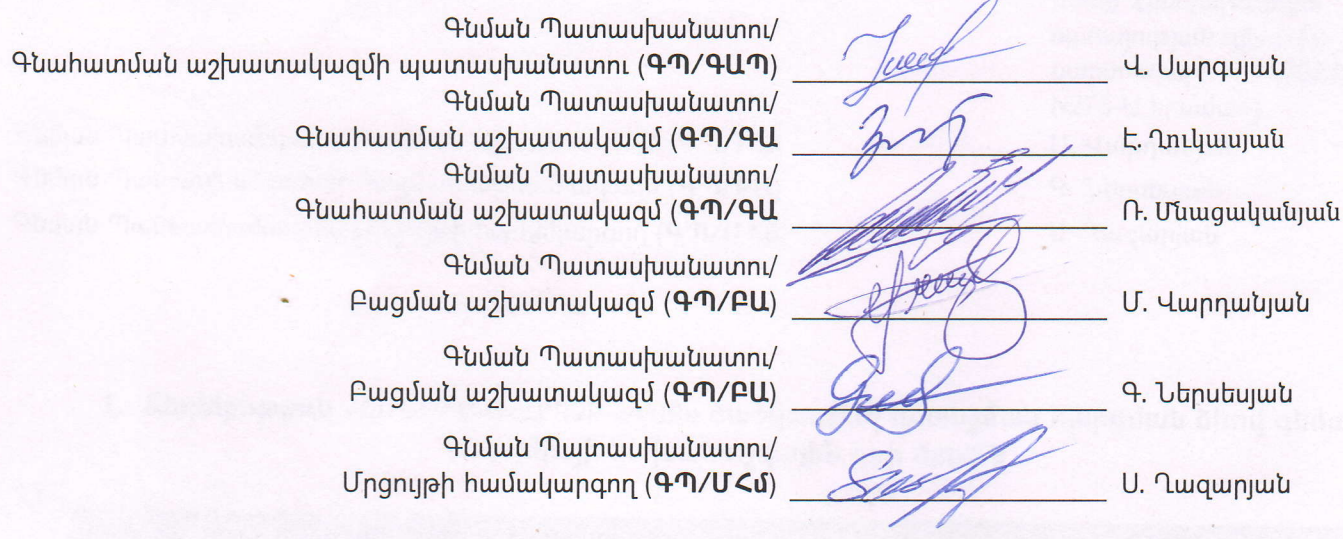 Գնման Պատասխանատու/
Գնահատման աշխատակազմի պատասխանատու (ԳՊ/ԳԱՊ) Վ. Սարգսյան
Գնման Պատասխանատու/
Գնահատման աշխատակազմ (ԳՊ/ԳԱ Ե. Ղուկասյան
Գնման Պատասխանատու/
Գնահատման աշխատակազմ (ԳՊ/ԳԱ Ռ. Մնացականյան
Գնման Պատասխանատու/
Բացման աշխատակազմ (ԳՊ/ԲԱ) Մ. Վարդանյան
Գնման Պատասխանատու/
Բացման աշխատակազմ (ԳՊ/ԲԱ) Գ. Ներսեսյան
Գնման Պատասխանատու/
Մրցույթի համակարգող (ԳՊ/ՄՀմ) Ս. Ղազարյան